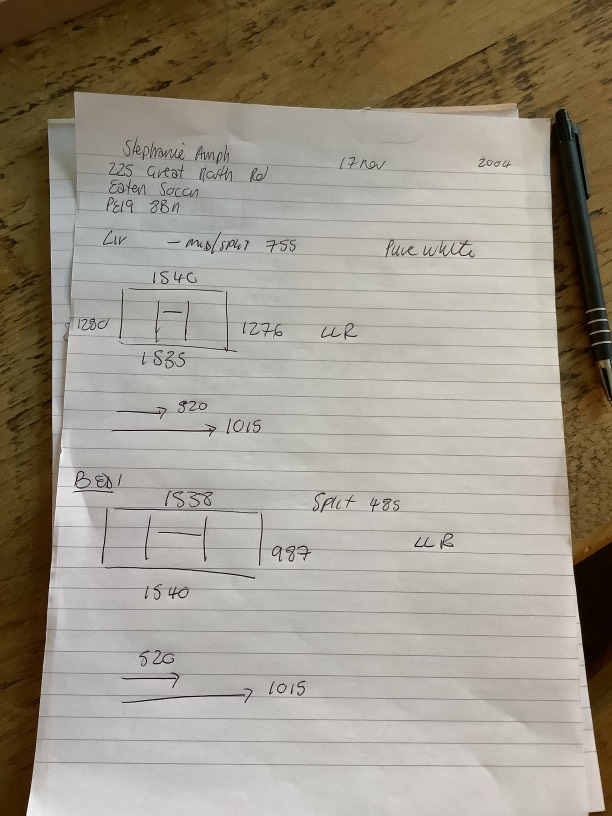 Stephanie Amph 17 nov 2004
225 Great North Rd
Eaten Socon
PE19 8Bn
Liv - mid/split 755 Pure white
1540
1280 1276 LLR
1535
520
1015
BED 1
1538 Split 485
987 LLR
1540
520
1015